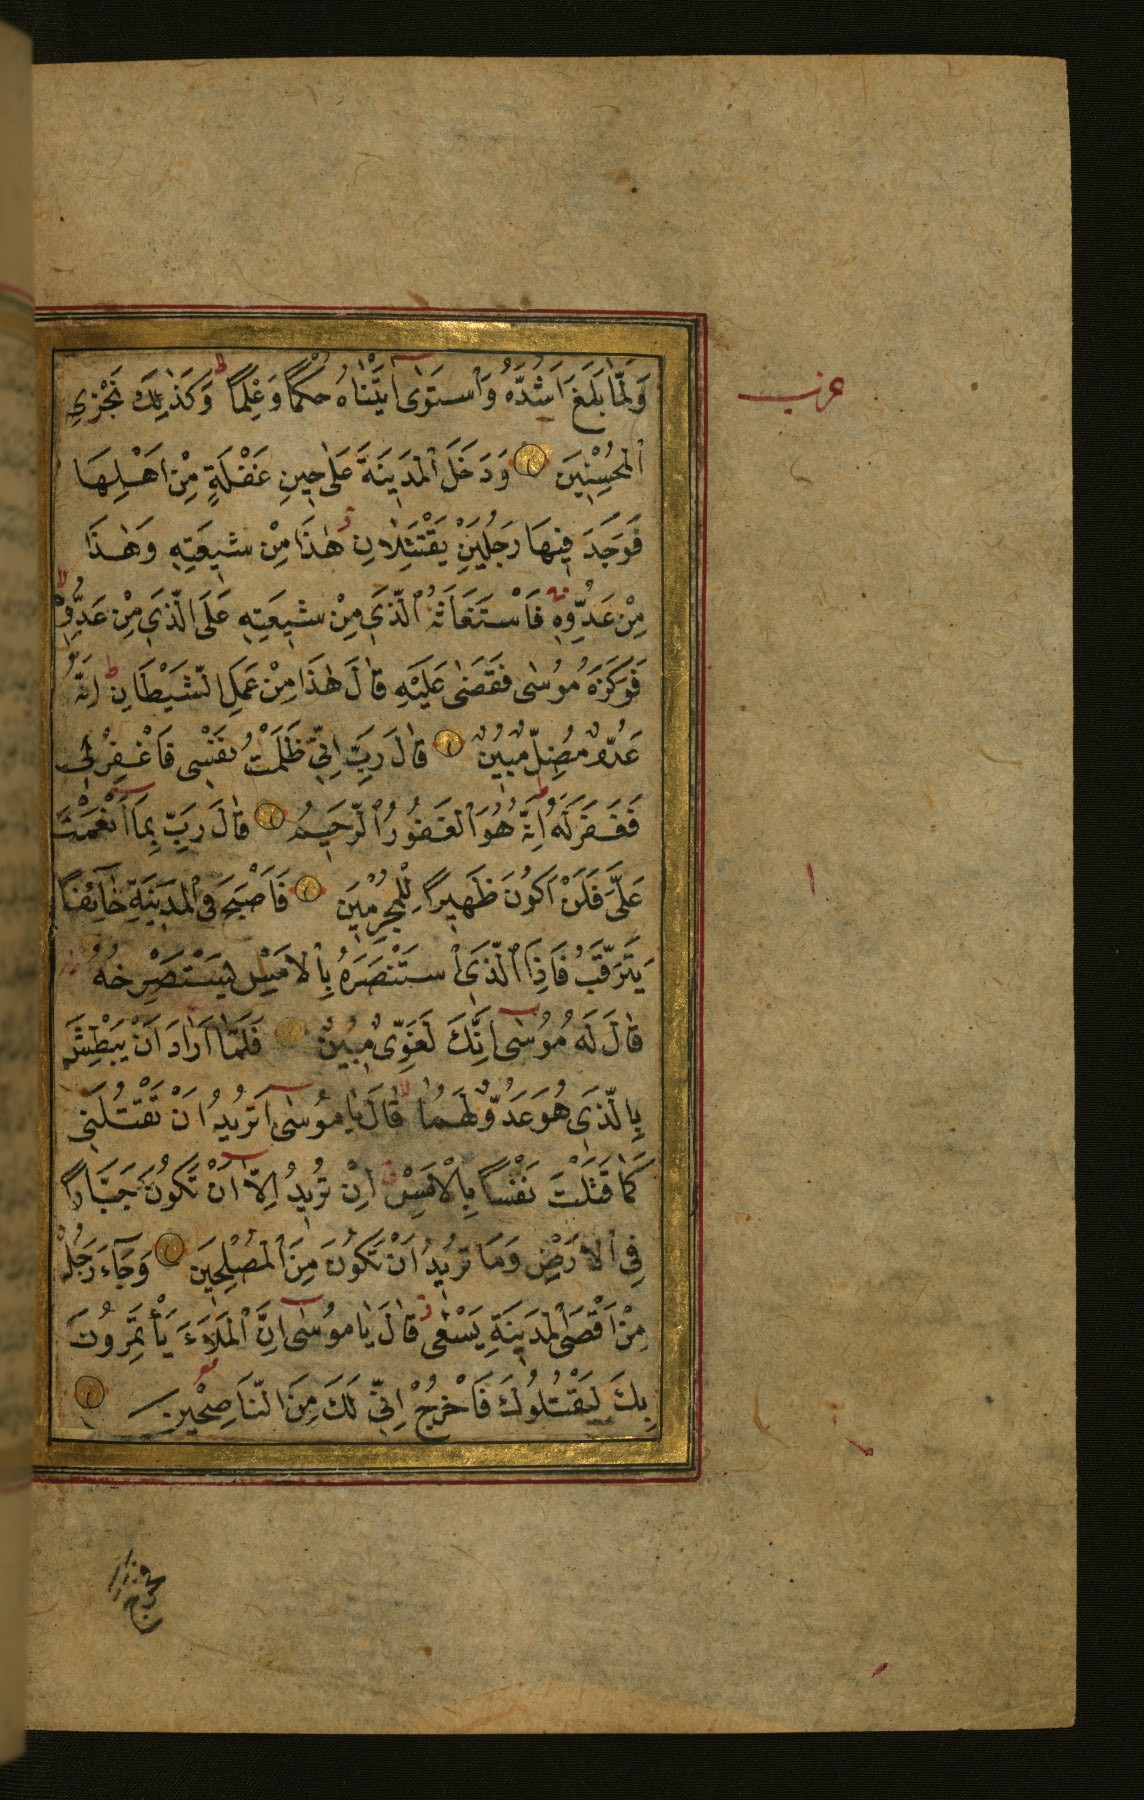 وَلَمَّا بَلَغَ اَشُدَّهُ وَاسْتَوٰى اٰتَيْنَاهُ حُكْمًا وَعِلْمًا ط وَكَذٰلِكَ نَجْزِى
عزب
الْمُحْسِنِينَ وَدَخَلَ الْمَدِينَةَ عَلٰى حِينِ غَفْلَةٍ مِنْ اَهْلِهَا
فَوَجَدَ فِيهَا رَجُلَيْنِ يَقْتَتِلَانِ هٰذَا مِنْ شِيعَتِهِ وَهٰذَا
مِنْ عَدُوِّهِ فَاسْتَغَاثَهُ الَّذِى مِنْ شِيعَتِهِ عَلَى الَّذِى مِنْ عَدُوِّهِ لا
فَوَكَزَهُ مُوسٰى فَقَضٰى عَلَيْهِ قَالَ هٰذَا مِنْ عَمَلِ الشَّيْطَانِ ط اِنَّهُ
عَدُوٌّ مُضِلٌّ مُبِينٌ قَالَ رَبِّ اِنِّى ظَلَمْتُ نَفْسِى فَاغْفِرْلِى
فَغَفَرَ لَهُ اِنَّهُ هُوَ الْغَفُورُ الرَّحِيمُ قَالَ رَبِّ بِمَا اَنْعَمْتَ
عَلَىَّ فَلَنْ اَكُونَ ظَهِيرًا لِلْمُجْرِمِينَ فَاَصْبَحَ فِى الْمَدِينَةِ خَائِفًا
يَتَرَقَّبُ فَاِذَا الَّذِى اسْتَنْصَرَهُ بِالْاَمْسِ يَسْتَصْرِخُهُ
قَالَ لَهُ مُوسٰى اِنَّكَ لَغَوِىٌّ مُبِينٌ فَلَمَّا اَرَادَ اَنْ يَبْطِشَ
بِالَّذِى هُوَ عَدُوٌّ لَهُمَا لا قَالَ يَا مُوسٰى اَتُرِيدُ اَنْ تَقْتُلَنِى
كَمَا قَتَلْتَ نَفْسًا بِالْاَمْسِ اِنْ تُرِيدُ اِلَّا اَنْ تَكُونَ جَبَّارًا
فِى الْاَرْضِ وَمَا تُرِيدُ اَنْ تَكُونَ مِنَ الْمُصْلِحِينَ وَجَاءَ رَجُلٌ
مِنْ اَقْصَى الْمَدِينَةِ يَسْعٰى ز قَالَ يَا مُوسٰى اِنَّ الْمَلَاَ يَأْتَمِرُونَ
بِكَ لِيَقْتُلُوكَ فَاخْرُجْ اِنِّى لَكَ مِنَ النَّاصِحِينَ
فخرج